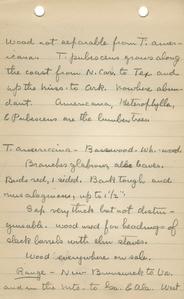 wood not separable from T. amer-
icana. T. pubescens grows along
the coast from N. Car. to Tex and
up the Miss. to Ark. Nowhere abun-
dant. Americana, Heterophylla,
& Pubescens are the lumber trees

T. americana - Basswood. Wh. wood.
Branches glabrous also leaves.
Buds red, 1 sided. Bark tough and
mucilaginous, up to 1½".
Sap very thick but not distin-
guishable. wood used for headings of
slack barrels with elm staves.
Wood everywhere on sale.
Range - New Brunswick to Va.
and in the Mts. to Ga. & Ala. West